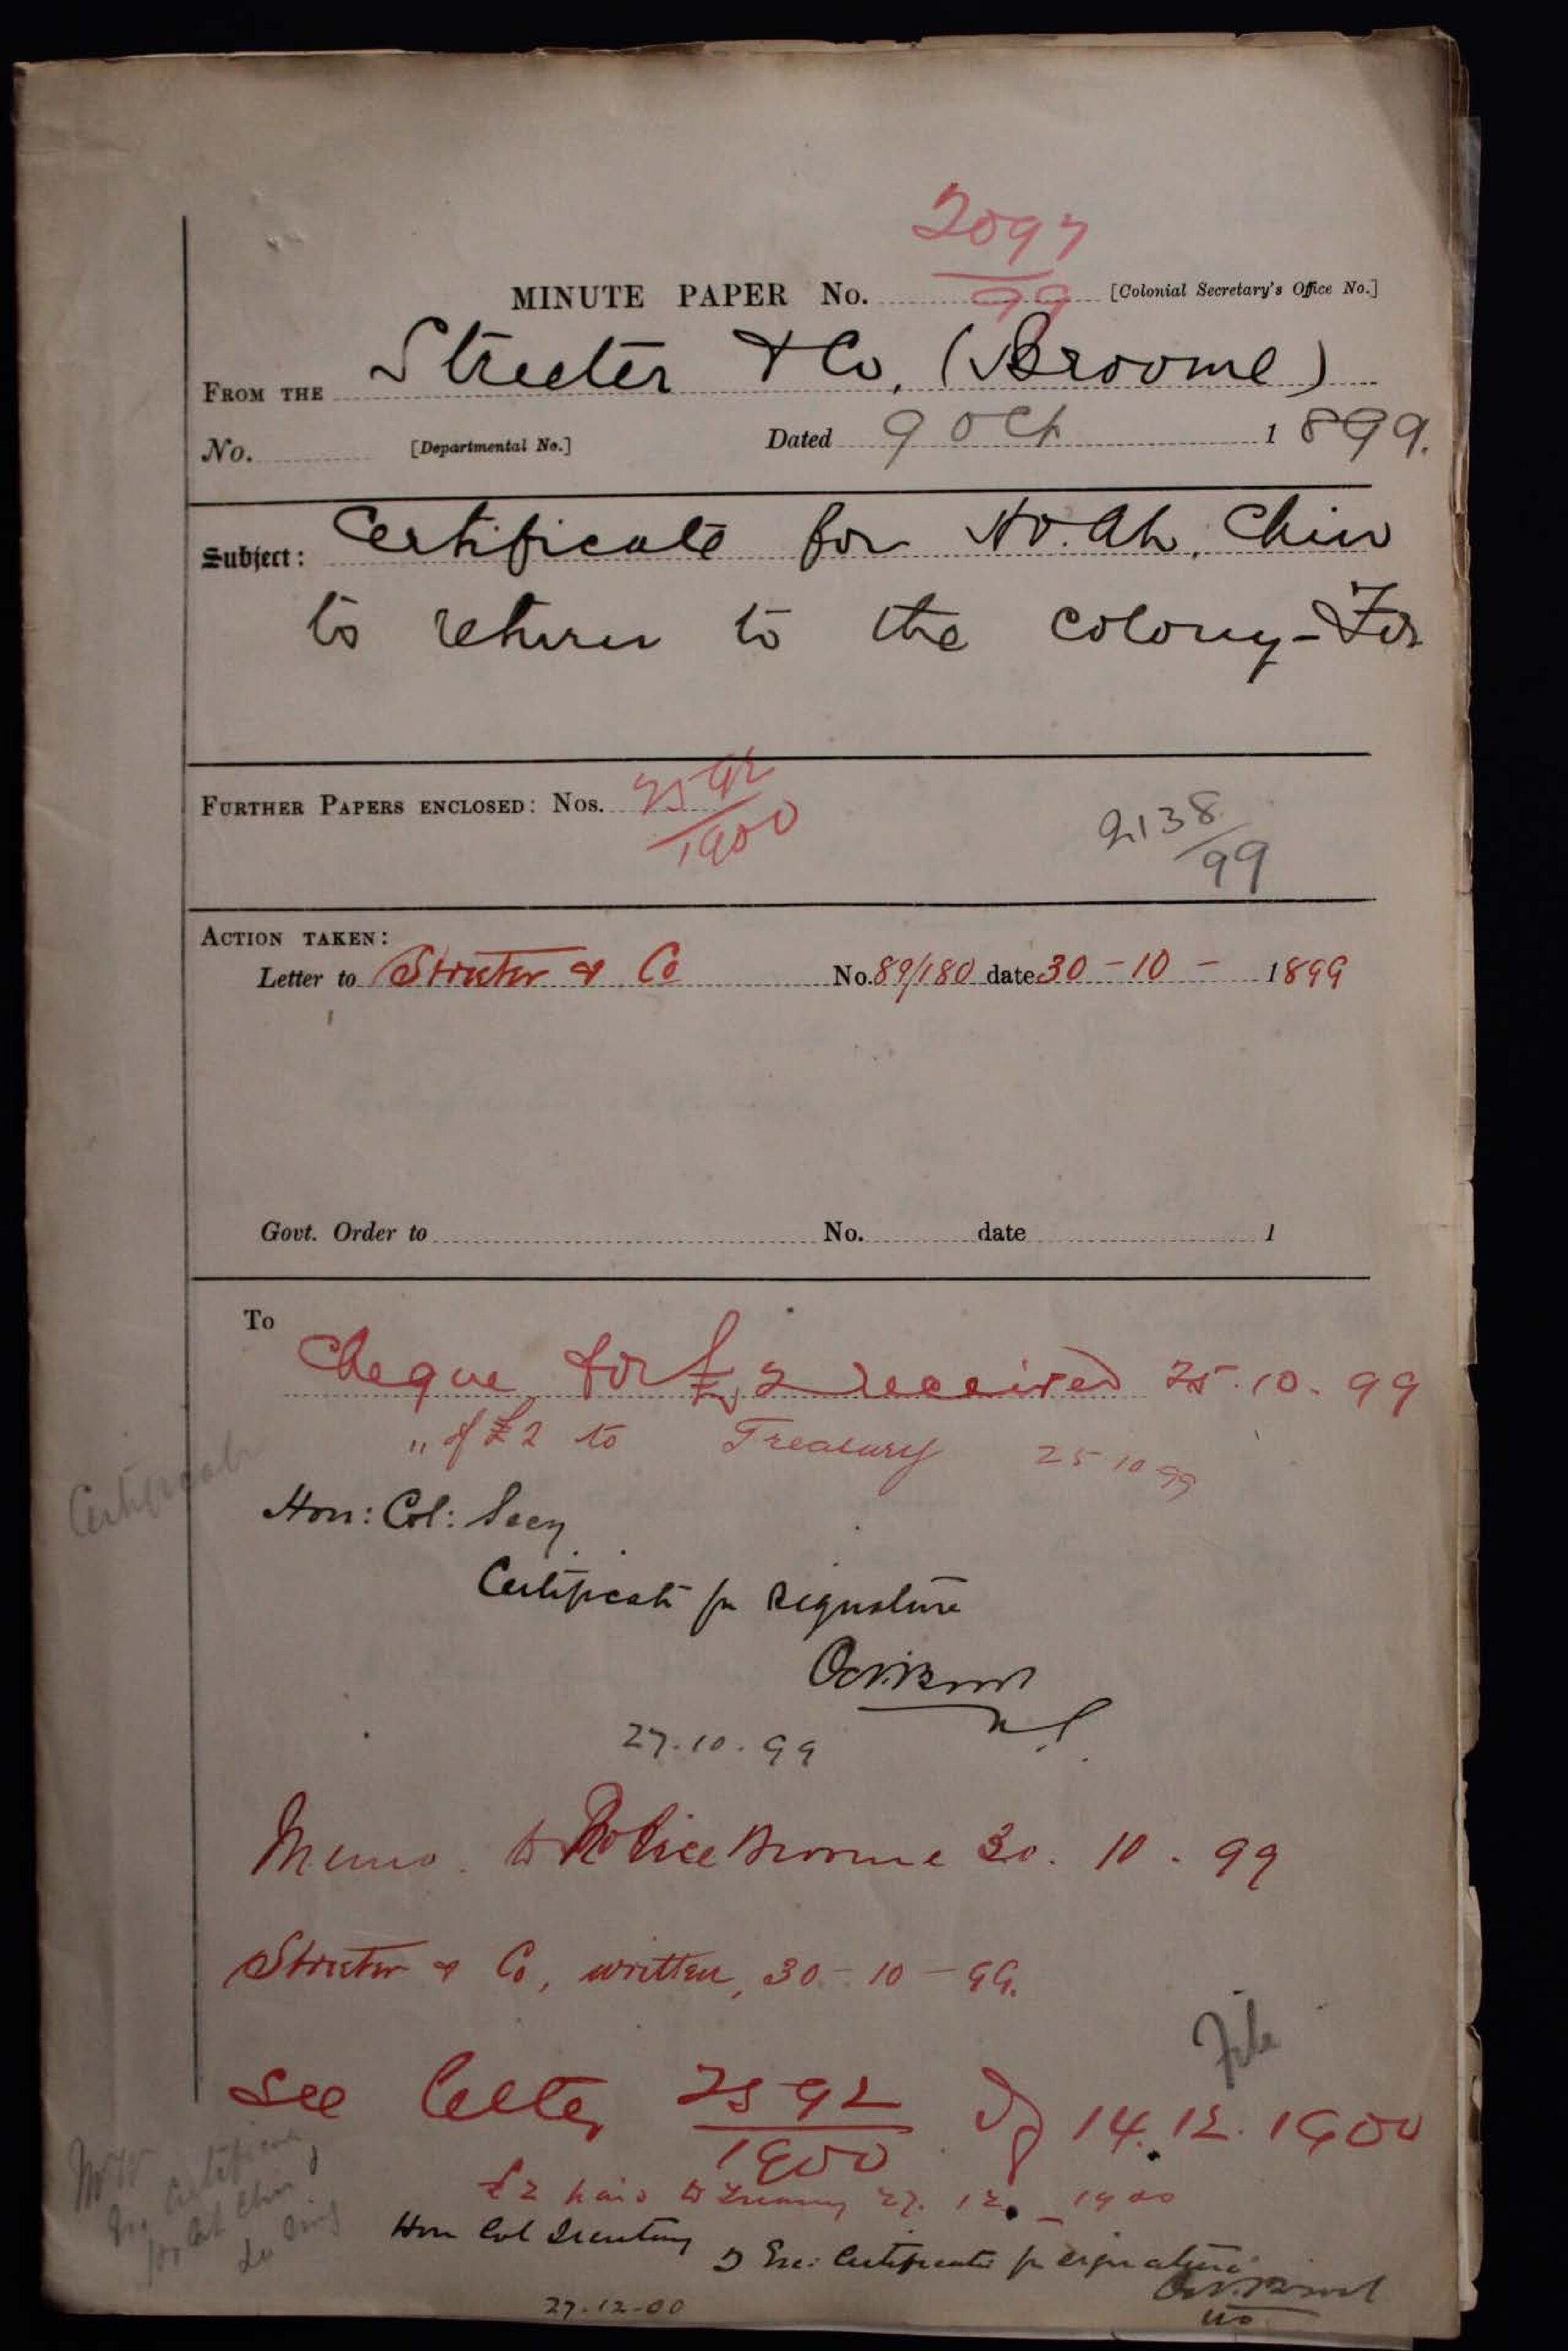 2097
99
MINUTE PAPER No. [Colonial Secretary's Office No.]
FROM THE Streeter & Co, (Broome)
No. [Departmental No.] Dated 9 Oct 1899.
Subject: Certificate for Ho. Ah. Chin
to return to the colony - For
FURTHER PAPERS ENCLOSED: Nos. 2592/1900 2138/99
ACTION TAKEN:
Letter to Streeter & Co No. 89/180 date 30-10- 1899
Govt. Order to No. date 1
To
Cheque for £2 received 25.10.99
" of £2 to Treasury 25 10 99
Certificate
Hon: Col: Secy
Certificate for signature
27.10.99
Memo. to Police Broome 30. 10. 99
Streeter & Co, written, 30-10-99.
File
See letter 2592/1900 dg 14.12.1900
£2 paid to Treasury 27. 12. 1900
Hon Col Secretary
Certificate for signature
27-12-00